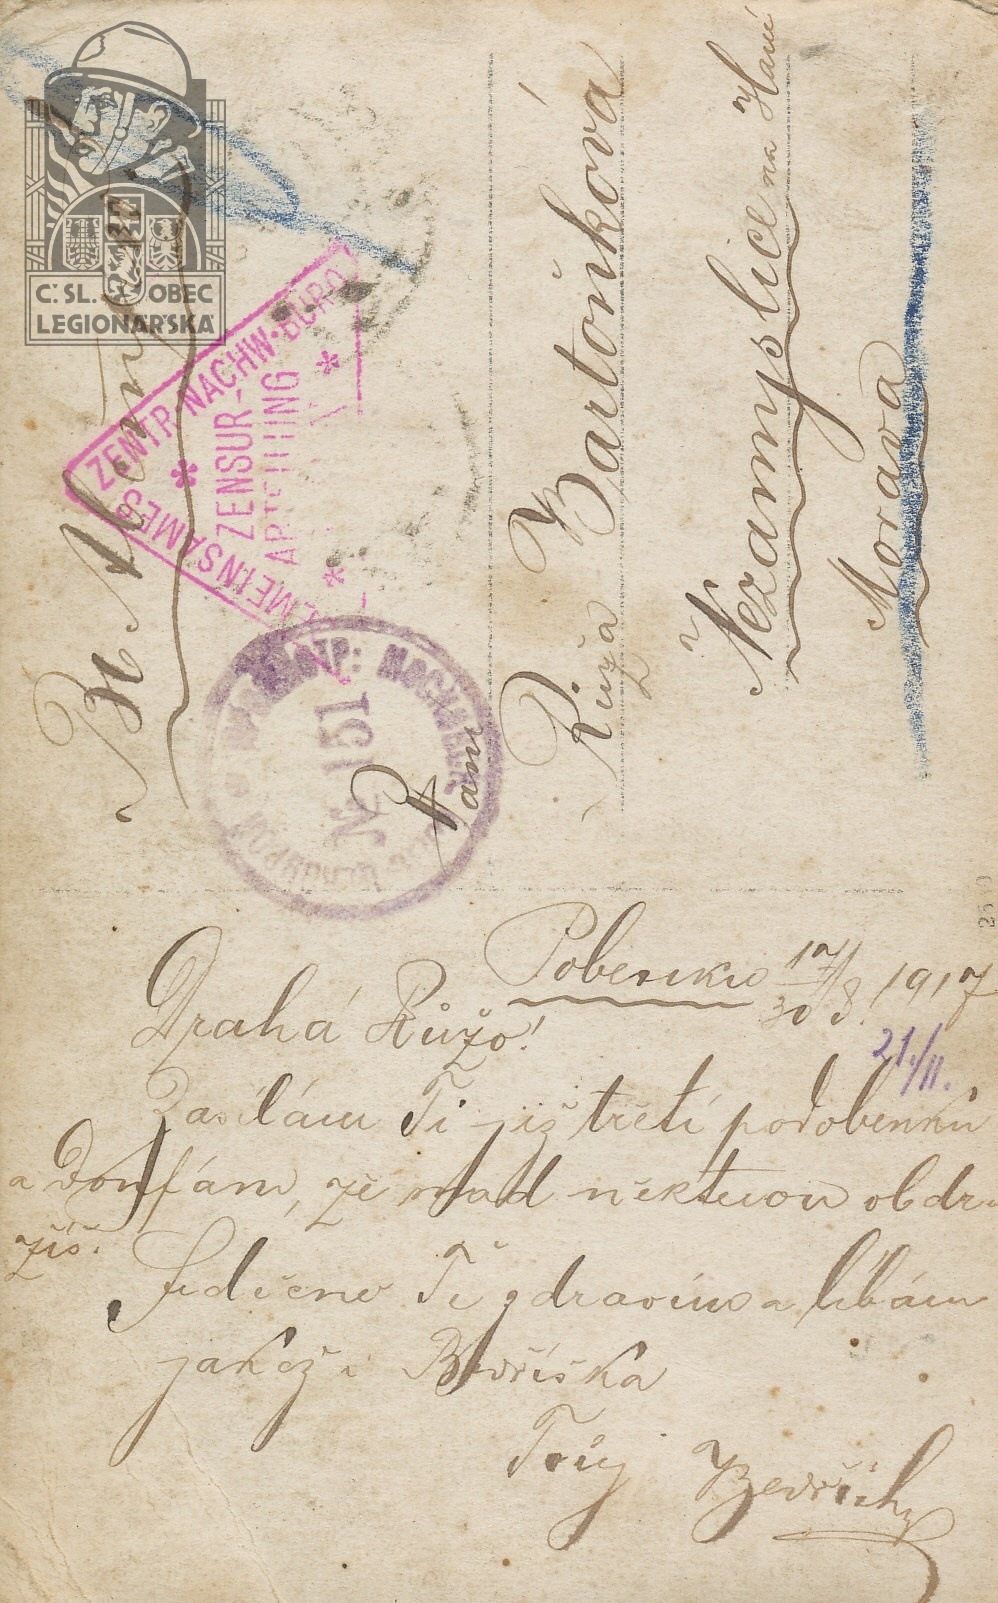 Č. SL. OBEC
LEGIONÁŘSKÁ
ZENTR. NACHW. BURO
ZENSUR-
ABTEILUNG
GEMEINSAMES
№ 151
Paní
Růža Bartoňková
Nezamyslice na Hané
Morava
17/30 8. 1917
21./11.
Drahá Růžo!
Zasílám Ti již třetí podobenku
a doufám, že snad některou obdr-
žíš.
Srdečně Tě zdravím a líbám
jakož i Bedříška
Tvůj Bedřich